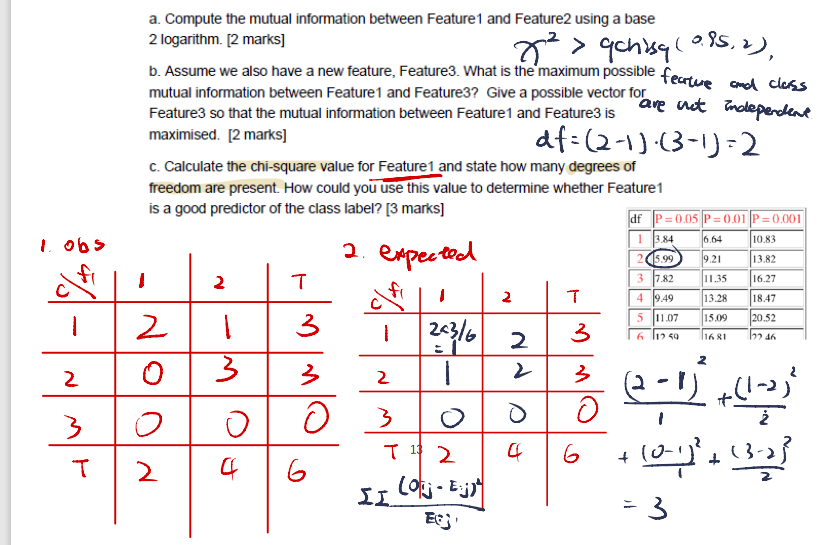 a. Compute the mutual information between Feature1 and Feature2 using a base
2 logarithm. [2 marks]
x² > qchisq(0.95, 2),
b. Assume we also have a new feature, Feature3. What is the maximum possible
mutual information between Feature1 and Feature3? Give a possible vector for
Feature3 so that the mutual information between Feature1 and Feature3 is
maximised. [2 marks]
feature and class
are not independent
df=(2-1)·(3-1)=2
c. Calculate the chi-square value for Feature1 and state how many degrees of
freedom are present. How could you use this value to determine whether Feature1
is a good predictor of the class label? [3 marks]
df P = 0.05 P = 0.01 P = 0.001
1 3.84 6.64 10.83
2 5.99 9.21 13.82
3 7.82 11.35 16.27
4 9.49 13.28 18.47
5 11.07 15.09 20.52
6 12.59 16.81 22.46
1. obs
c\f1 1 2 T
1 2 1 3
2 0 3 3
3 0 0 0
T 2 4 6
2. expected
c\f1 1 2 T
1 2×3/6 = 1 2 3
2 1 2 3
3 0 0 0
T 2 4 6
13
ΣΣ (Oij - Eij)² / Eij
(2-1)²/1 + (1-2)²/2
+ (0-1)²/1 + (3-2)²/2
= 3